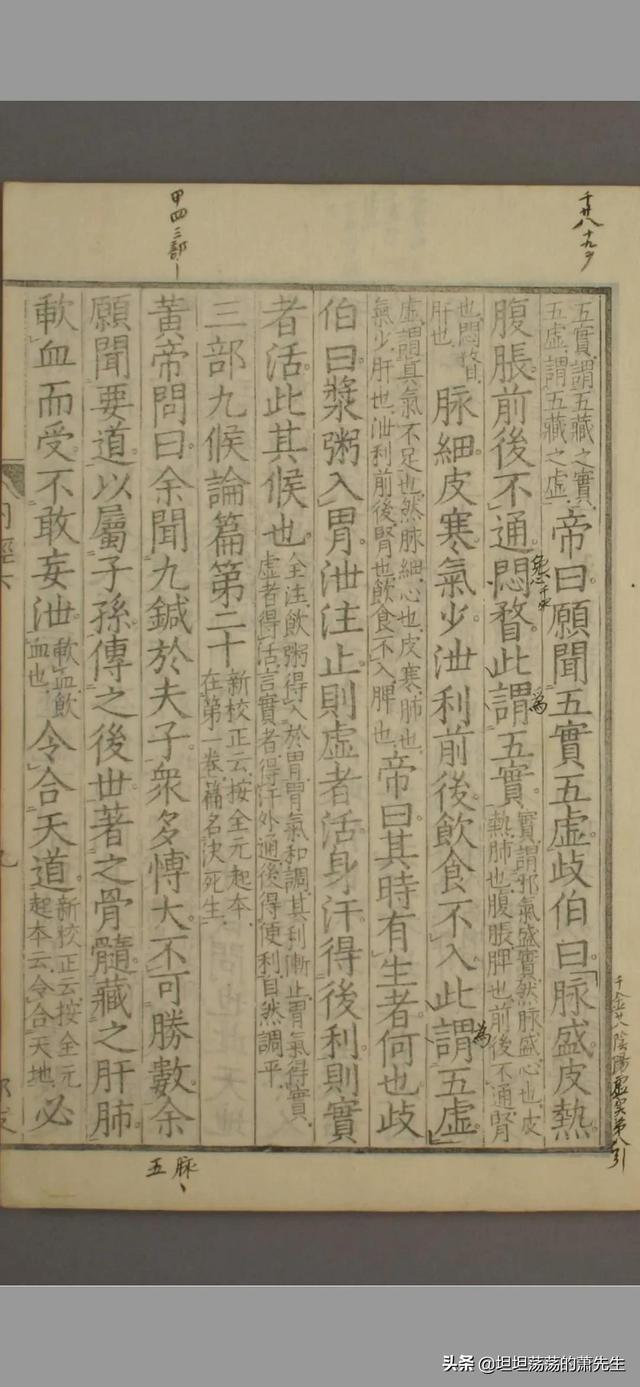 五實謂五藏之實
五虛謂五藏之虛
帝曰願聞五實五虛歧伯曰脈盛皮熱
腹脹前後不通悶瞀此謂五實
實謂邪氣盛實然脈盛心也皮
熱肺也腹脹脾也前後不通腎
也悶瞀
肝也
脈細皮寒氣少泄利前後飲食不入此謂五虛
虛謂真氣不足也然脈細心也皮寒肺也
氣少肝也泄利前後腎也飲食不入脾也
帝曰其時有生者何也歧
伯曰漿粥入胃泄注止則虛者活身汗得後利則實
者活此其候也
全注飲粥得入於胃胃氣和調其利漸止胃氣得實
虛者得活言實者得汗外通後得便利自然調平
三部九候論篇第二十
新校正云按全元起本
在第一卷篇名決死生
黃帝問曰余聞九鍼於夫子衆多愽大不可勝數余
願聞要道以屬子孫傳之後世著之骨髓藏之肝肺
歃血而受不敢妄泄
歃血飲
血也
令合天道
新校正云按全元
起本云令合天地
必
千廿八十九
甲四三部
為
為
千金廿八陰陽虛实第八引
脉
五
头条 @坦坦荡荡的萧先生